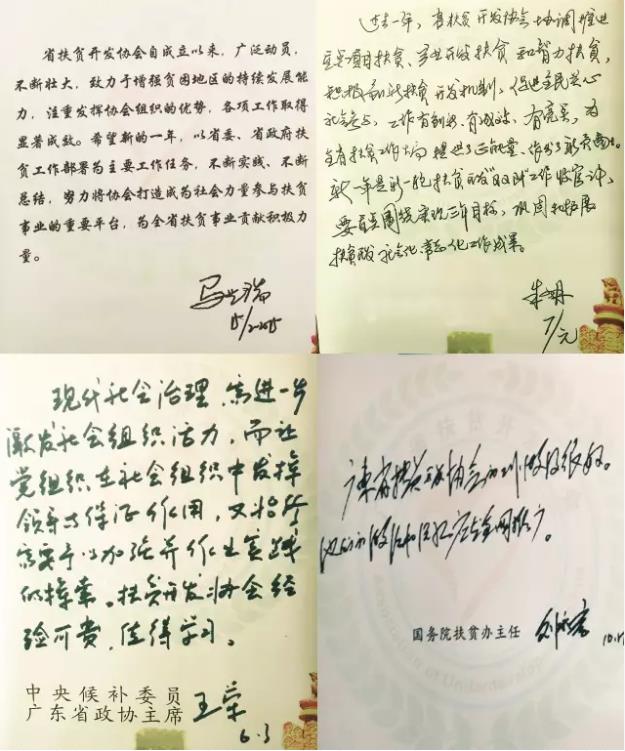 省扶贫开发协会自成立以来，广泛动员，
不断壮大，致力于增强贫困地区的持续发展能
力，注重发挥协会组织的优势，各项工作取得
显著成效。希望新的一年，以省委、省政府扶
贫工作部署为主要工作任务，不断实践、不断
总结，努力将协会打造成为社会力量参与扶贫
事业的重要平台，为全省扶贫事业贡献积极力
量。
马兴瑞
过去一年，省扶贫开发协会协调推进
产业开发扶贫和智力扶贫，
积极创新扶贫开发机制，
社会参与，工作有创新、有成效、有亮点，为
全省扶贫工作大局提供了正能量、作出了新贡献。
新一年是新一轮扶贫开发“双到”工作收官之年，
要围绕实现三年目标，巩固和拓展
扶贫社会化常态化工作成果。
7/元
现代社会治理，需进一步
激发社会组织活力，而让
党组织在社会组织中发挥
领导与保证作用，又恰恰
需要予以加强并作出实践
的探索。扶贫开发协会经
验可贵，值得学习。
中央候补委员
广东省政协主席 王荣
6.3
广东省扶贫开发协会做得很好。
他们的做法和经验应在全国推广。
国务院扶贫办主任 刘永富